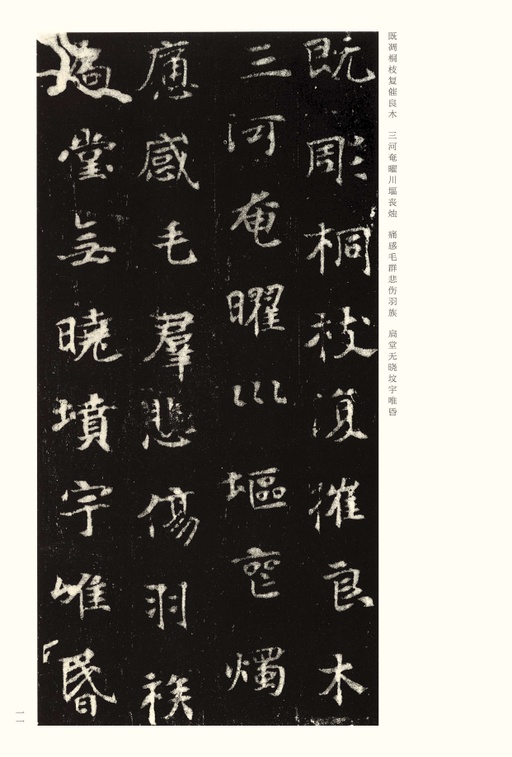 既凋桐枝复催良木　三河奄曜川塸丧烛　痛感毛群悲伤羽族　扃堂无晓坟宇唯昏
既彫桐枝復摧良木
三河奄曜巛塸喪燭
痛感毛羣悲傷羽族
扃堂無曉墳宇唯昏
一一